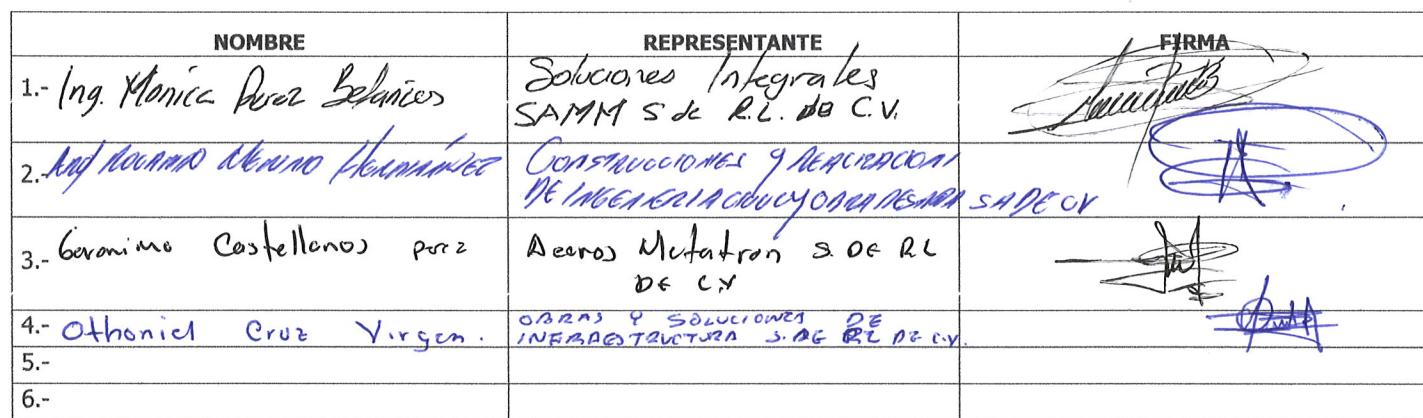 NOMBRE REPRESENTANTE FIRMA
1.- Ing. Monica Perez Soluciones Integrales
SAMM S de R.L. de C.V.
2.- Hernández Construcciones y
DE INGENIERIA CIVIL Y OBRA PESADA SA DE CV
3.- Geronimo Castellanos perez Aceros Mutatron S. DE RL
DE C.V
4.- Othoniel Cruz Virgen. OBRAS Y SOLUCIONES DE
INFRAESTRUCTURA S. DE RL DE C.V.
5.-
6.-